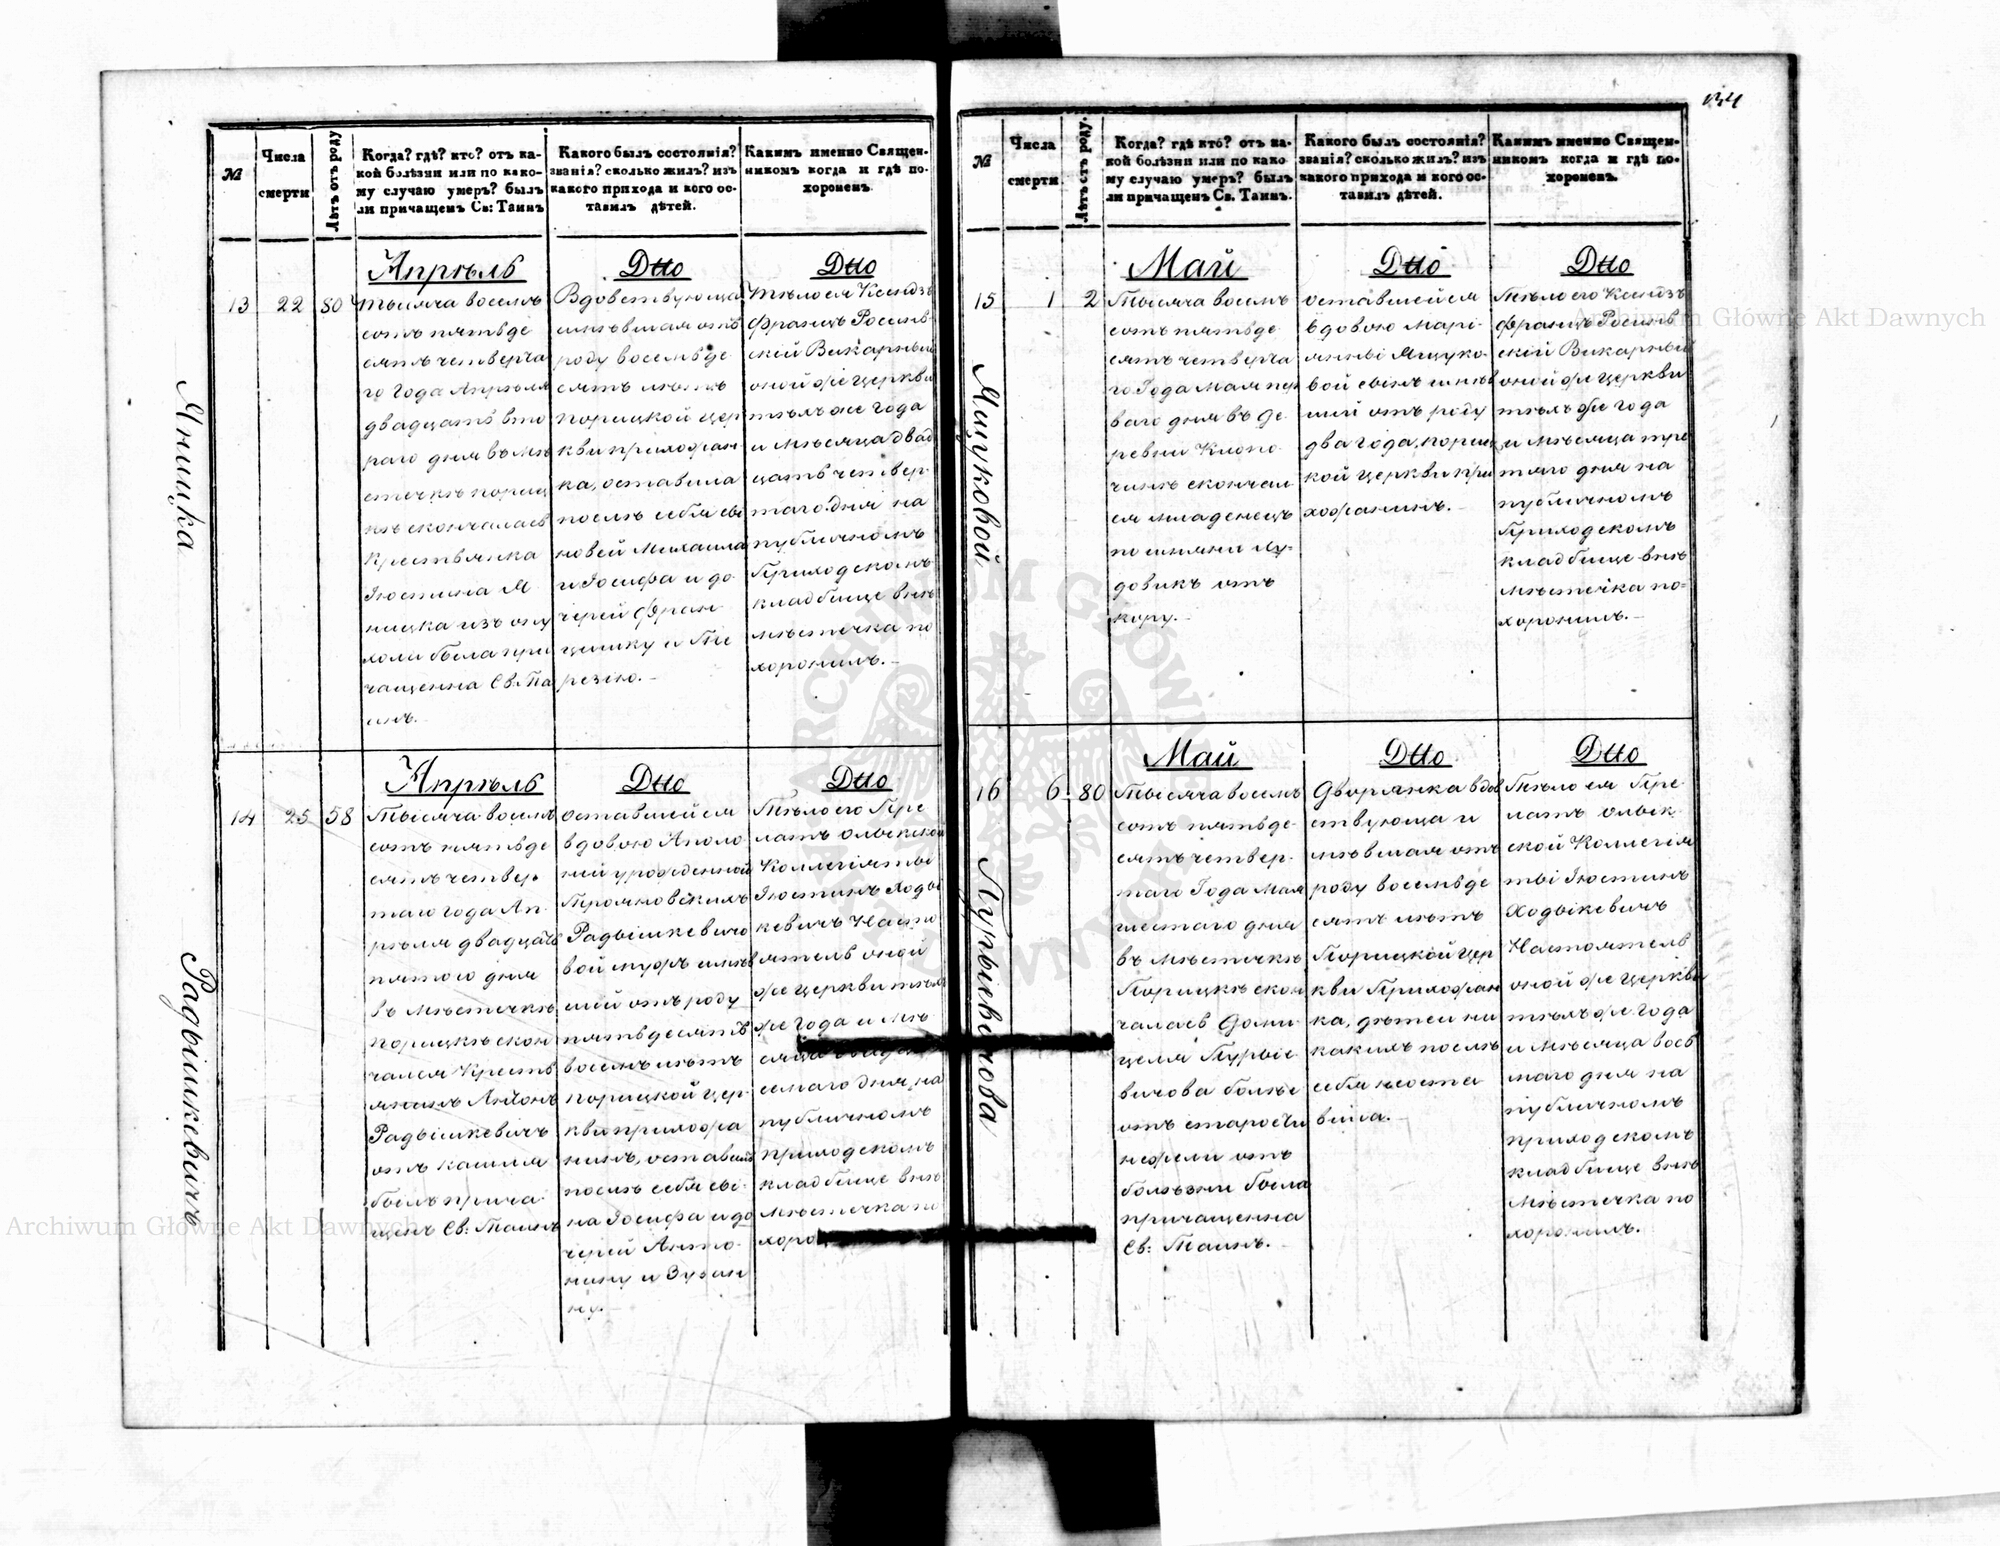 134
№
Числа
смерти
Лѣтъ отъ роду
Когда? гдѣ? кто? отъ ка-
кой болѣзни или по како-
му случаю умеръ? былъ
ли причащенъ Св: Таинъ
Какого былъ состоянія?
званія? сколько жилъ? изъ
какого прихода и кого ос-
тавилъ дѣтей.
Какимъ именно Священ-
никомъ когда и гдѣ по-
хороненъ.
Яницка
13
22
80
Апрѣль
Тысяча восемь
сотъ пятьде
сятъ четверта
го года Апрѣля
двадцать вто
раго дня въ мѣ
стечкѣ Пориц
кѣ скончалась
Крестьянка
Юстина Я
ницка изъ опу
холи была при
чащенна Св. Та
инъ.
Dtto
Вдовствующая
имѣвшая отъ
роду восемьде
сятъ лѣтъ
Порицкой цер
кви прихожан
ка, оставила
послѣ себя сы
новей Михаила
и Іосифа и до
черей Фран
цишку и Те
резію.
Dtto
Тѣло ея Ксіндзъ
Францъ Росинь
скій Викарный
оной же церкви
тѣхъ же года
и мѣсяца двад
цать четвер
таго дня на
публичномъ
Приходскомъ
кладбище внѣ
мѣстечка по
хоронилъ.
Радышкевичъ
14
25
58
Апрѣль
Тысяча восемь
сотъ пятьде
сятъ четвер
таго года Ап
рѣля двадцать
пятого дня
въ мѣстечкѣ
Порицкѣ скон
чался Кресть
янинъ Антонъ
Радышкевичъ
отъ кашля
былъ прича
щенъ Св: Таинъ
Dtto
оставшейся
вдовою Аполо
ніи урожденной
Радышкевичо
вой мужъ имѣв
шій отъ роду
пятьдесятъ
восемь лѣтъ
Порицкой цер
кви прихожа
нинъ, оставилъ
послѣ себя сы
на Іосифа и до
черей Анто
нину и Зузан
ну.
Dtto
Тѣло его Пре
латъ Олыкской
Коллегіяты
Юстинъ Ходы
кевичъ Насто
ятель оной
же церкви тѣхъ
же года и мѣ
сяца двадцать
семаго дня на
публичномъ
приходскомъ
кладбище внѣ
мѣстечка по
хоро
№
Числа
смерти
Лѣтъ отъ роду.
Когда? гдѣ кто? отъ ка-
кой болѣзни или по како
му случаю умеръ? былъ
ли причащенъ Св. Таинъ.
Какого былъ состоянія?
званія? сколько жилъ? изъ
какого прихода и кого ос-
тавилъ дѣтей.
Какимъ именно Священ-
никомъ когда и гдѣ по-
хороненъ.
Яцуковой
15
1
2
Май
Тысяча восемь
сотъ пятьде
сятъ четверта
го Года Мая пер
ваго дня въ де
ревни Клопо
чинъ скончал
ся младенецъ
по имяни Лу-
довикъ отъ
кору.
Dtto
оставшейся
вдовою Марі
янны Яцуко
вой сынъ имѣв
шій отъ роду
два года, Пориц
кой церкви при
хожанинъ.
Dtto
Тѣло его Ксіндзъ
Францъ Росинь
скій Викарный
оной же церкви
тѣхъ же года
и мѣсяца тре
тяго дня на
публичномъ
Приходскомъ
кладбище внѣ
мѣстечка по-
хоронилъ.
Пурыевичова
16
6
80
Май
Тысяча восемь
сотъ пятьде-
сятъ четвер-
таго Года Мая
шестаго дня
въ мѣстечкѣ
Порицкѣ скон
чалась Доми
целя Пурые
вичова болѣе
отъ старости
нежели отъ
болѣзни была
причащенна
Св: Таинъ.
Dtto
Дворянка вдов
ствующа и
мѣвшая отъ
роду восемьде
сятъ лѣтъ
Порицкой цер
кви Прихожан
ка, дѣтей ни
какихъ послѣ
себя неоста
вила.
Dtto
Тѣло ея Пре
латъ Олык
ской Коллегія
ты Юстинъ
Ходыкевичъ
Настоятель
оной же церкви
тѣхъ же года
и мѣсяца вось
маго дня на
публичномъ
приходскомъ
кладбище внѣ
мѣстечка по
хоронилъ.
Archiwum Główne Akt Dawnych
Archiwum Główne Akt Dawnych